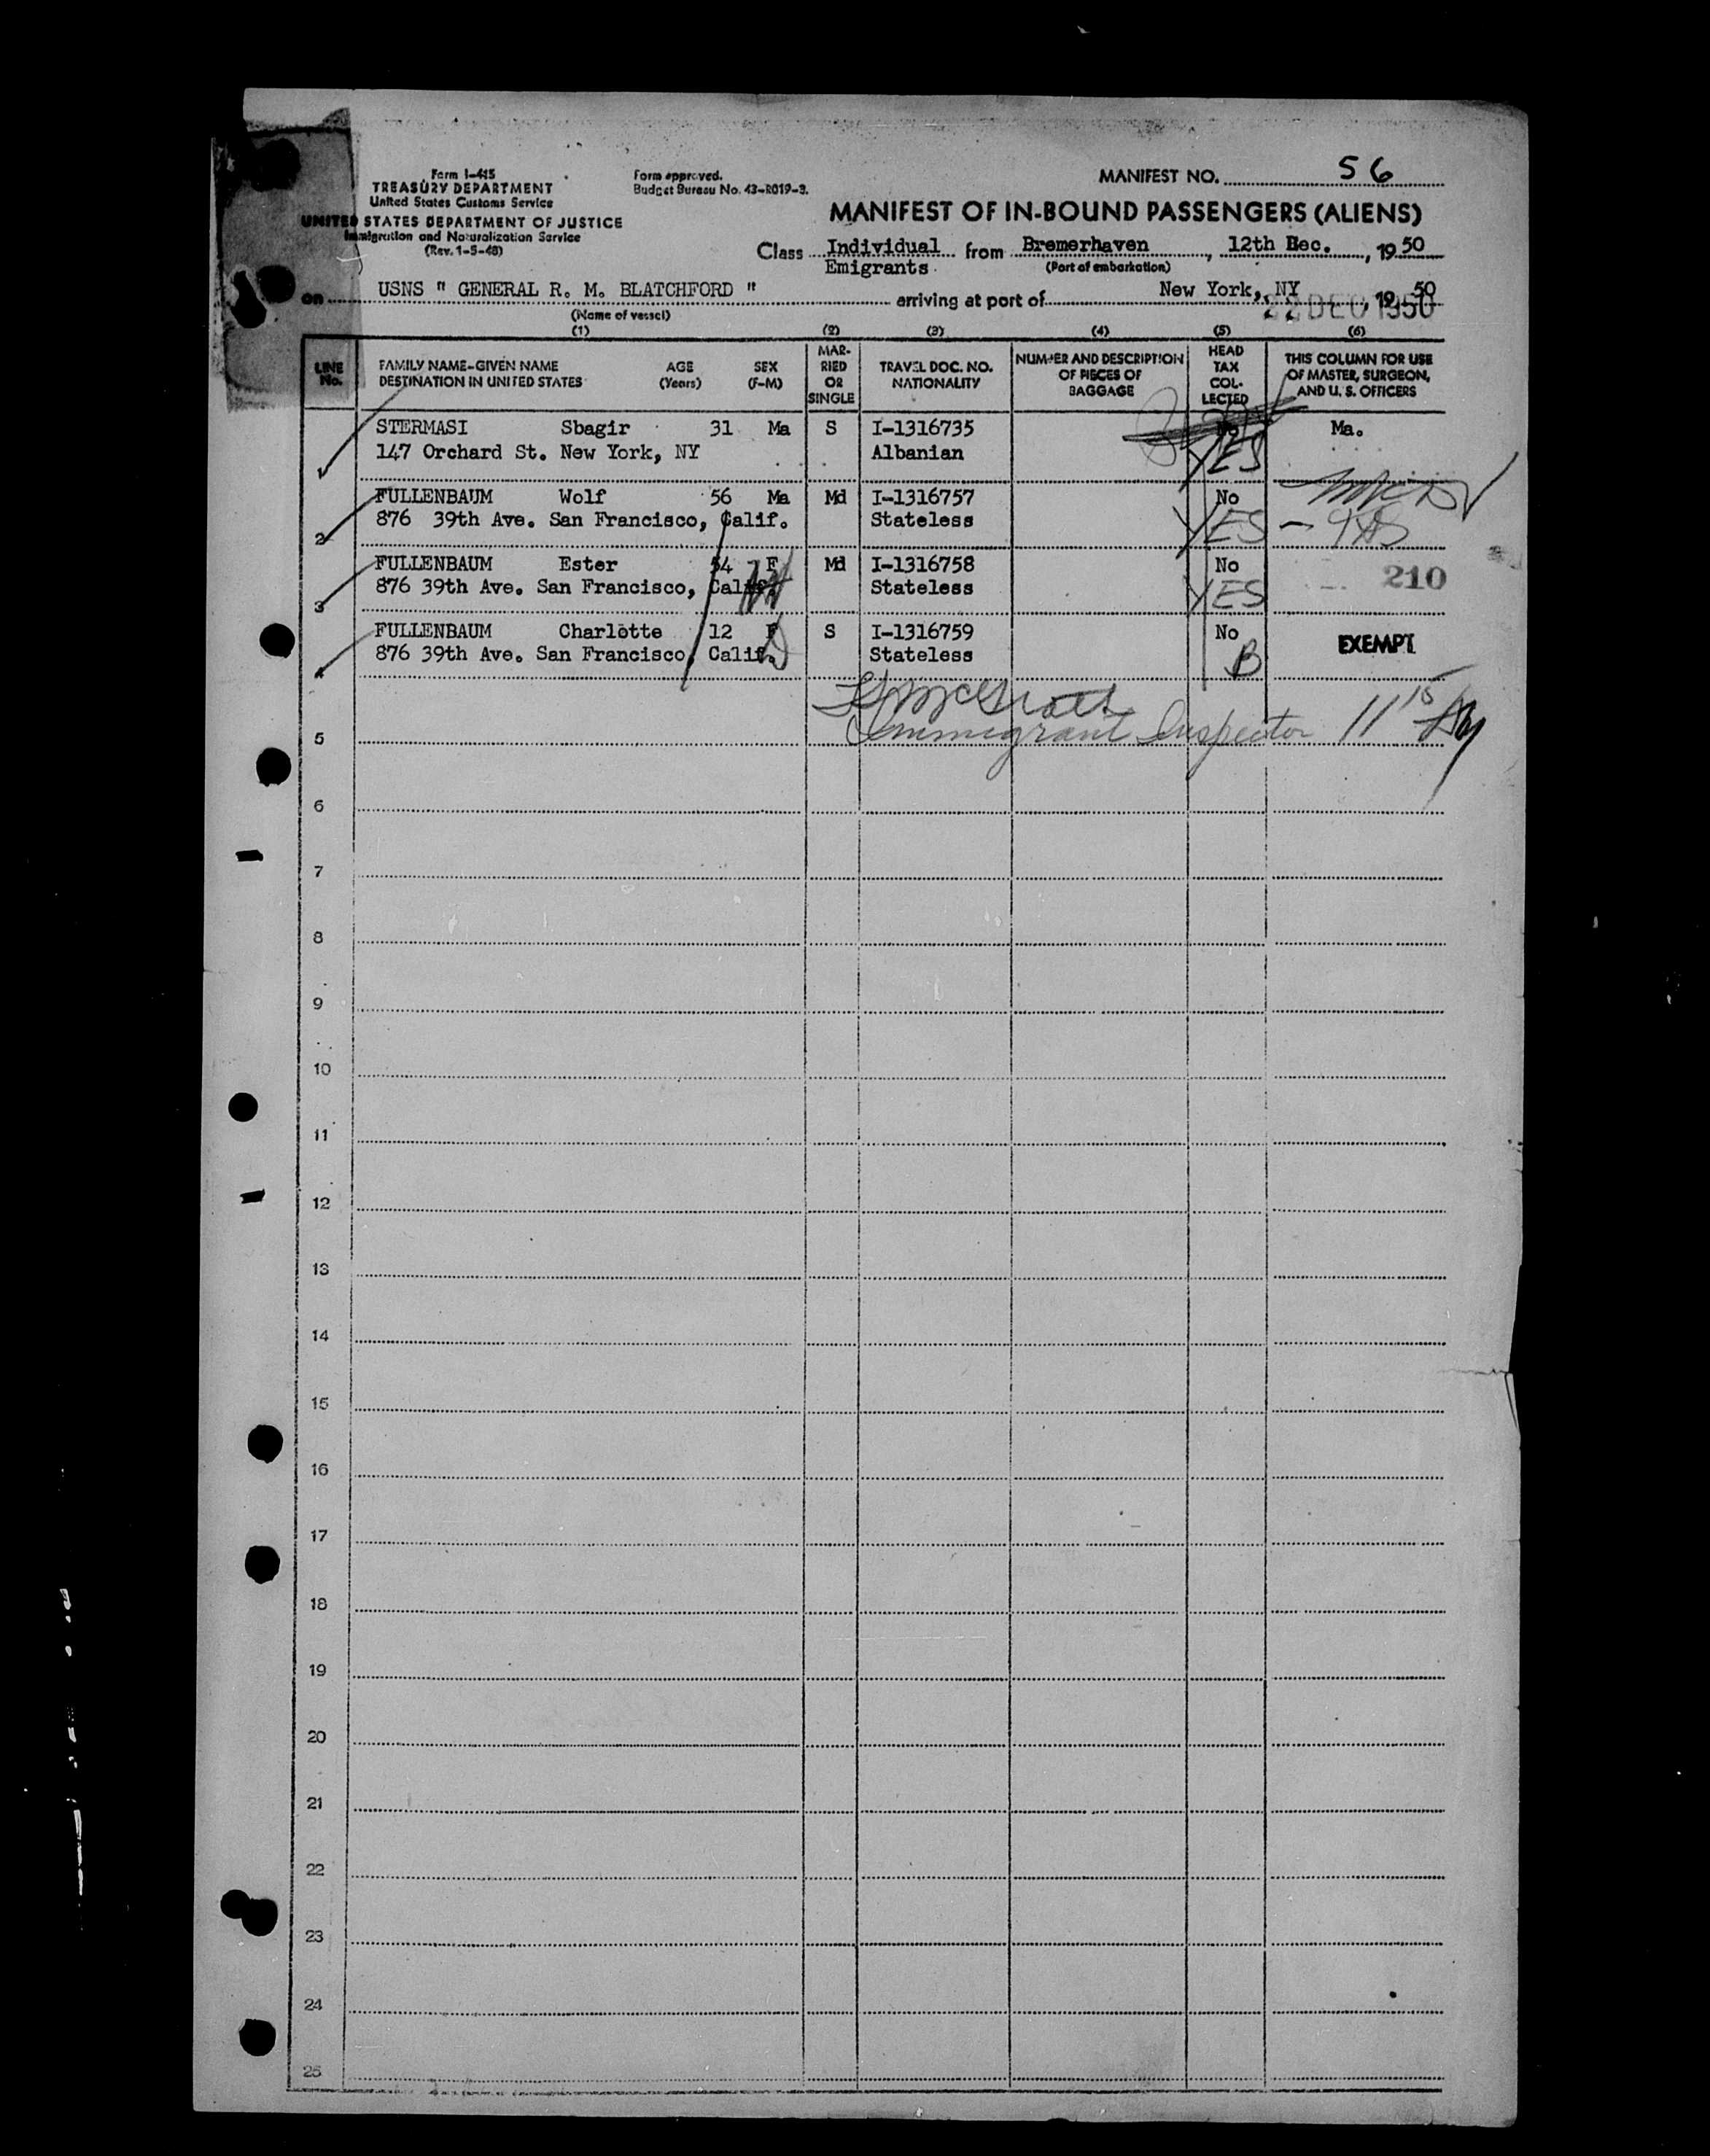 Form I-415
TREASURY DEPARTMENT
United States Customs Service
UNITED STATES DEPARTMENT OF JUSTICE
Immigration and Naturalization Service
(Rev. 1-5-48)
Form approved.
Budget Bureau No. 43-R019-3.
MANIFEST NO. 56
MANIFEST OF IN-BOUND PASSENGERS (ALIENS)
Class Individual from Bremerhaven, 12th Dec., 1950
Emigrants (Port of embarkation)
on USNS " GENERAL R. M. BLATCHFORD " arriving at port of New York, NY, 1950
22 DEC 1950
(Name of vessel)
(1) (2) (3) (4) (5) (6)
LINE No.
FAMILY NAME-GIVEN NAME AGE SEX
DESTINATION IN UNITED STATES (Years) (F-M)
MAR-
RIED
OR
SINGLE
TRAVEL DOC. NO.
NATIONALITY
NUMBER AND DESCRIPTION
OF PIECES OF
BAGGAGE
HEAD
TAX
COL-
LECTED
THIS COLUMN FOR USE
OF MASTER, SURGEON,
AND U. S. OFFICERS
STERMASI Sbagir 31 Ma S I-1316735 No Ma.
147 Orchard St. New York, NY Albanian YES
1
FULLENBAUM Wolf 56 Ma Md I-1316757 No
876 39th Ave. San Francisco, Calif. Stateless YES
2
FULLENBAUM Ester 54 F Md I-1316758 No 210
876 39th Ave. San Francisco, Calif. Stateless YES
3
FULLENBAUM Charlotte 12 F S I-1316759 No EXEMPT
876 39th Ave. San Francisco, Calif. Stateless B
4
Immigrant Inspector 11 15
5
6
7
8
9
10
11
12
13
14
15
16
17
18
19
20
21
22
23
24
25